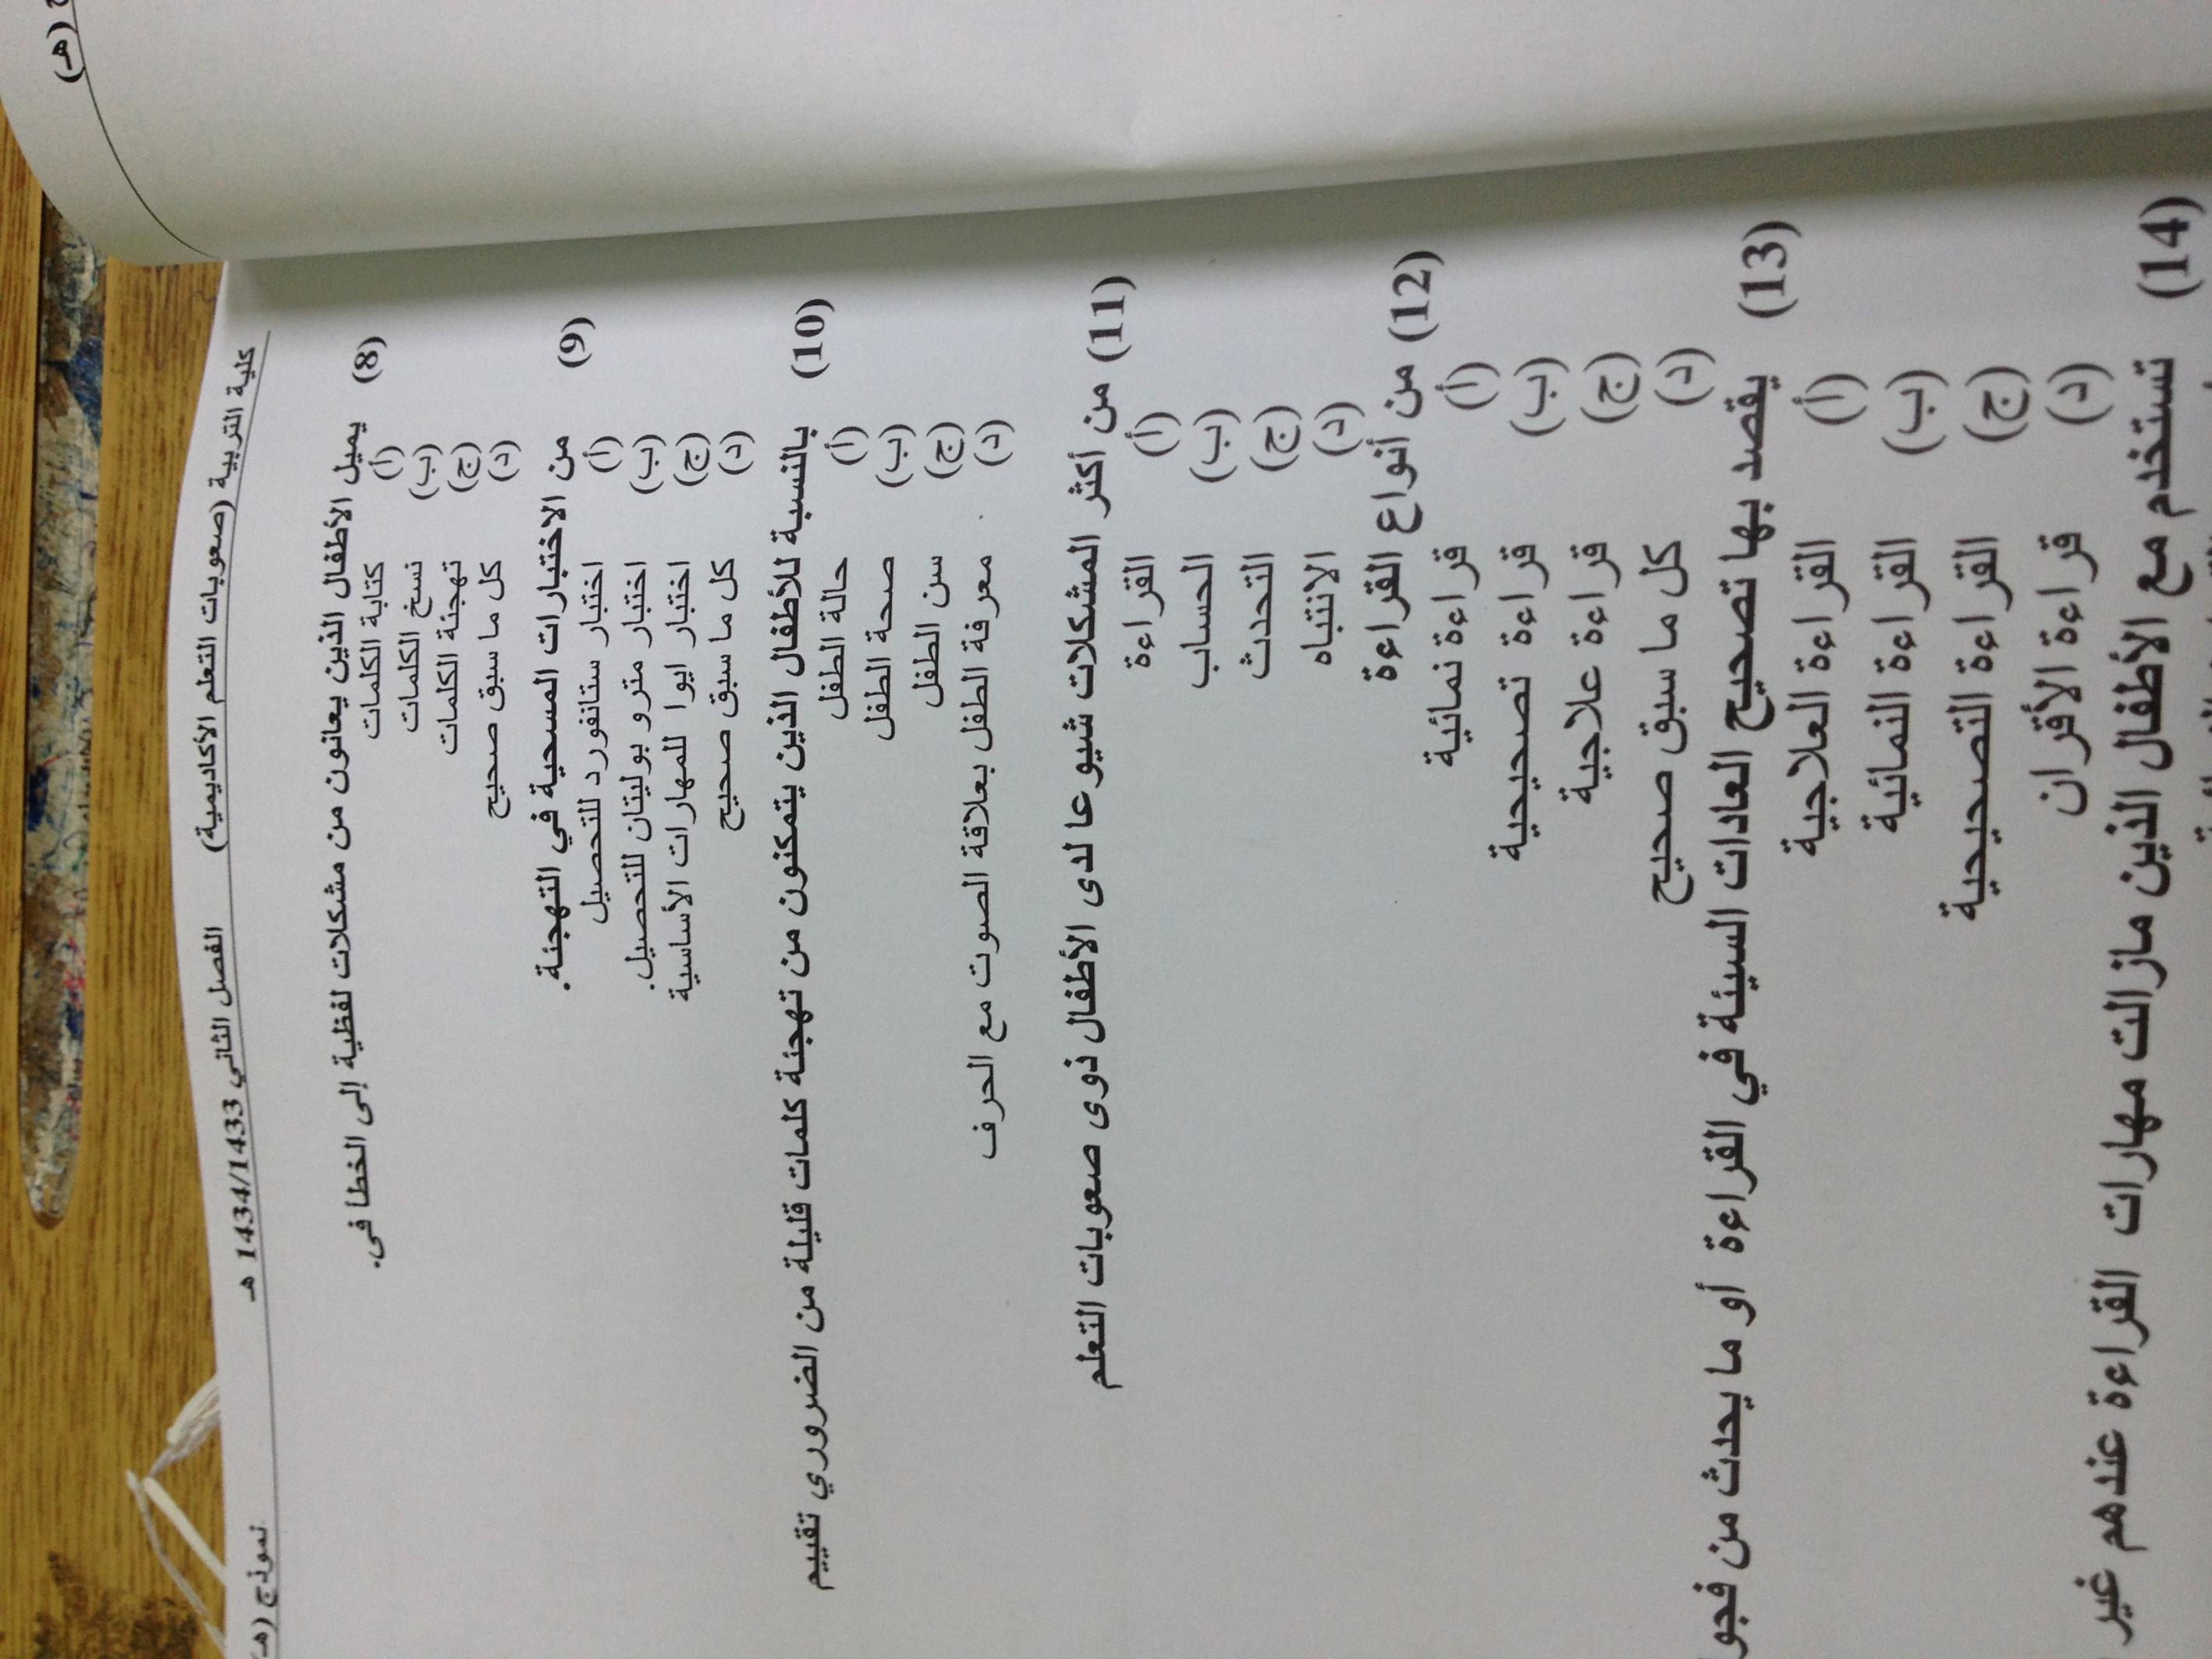 (هـ)
كلية التربية (صعوبات التعلم الأكاديمية) الفصل الثاني 1434/1433 هـ نموذج (هـ
(8) يميل الأطفال الذين يعانون من مشكلات لفظية إلى الخطأ في.
(أ) كتابة الكلمات
(ب) نسخ الكلمات
(ج) تهجئة الكلمات
(د) كل ما سبق صحيح
(9) من الاختبارات المسحية في التهجئة.
(أ) اختبار ستانفورد للتحصيل
(ب) اختبار مترو بوليتان للتحصيل.
(ج) اختبار ايوا للمهارات الأساسية
(د) كل ما سبق صحيح
(10) بالنسبة للأطفال الذين يتمكنون من تهجئة كلمات قليلة من الضروري تقييم
(أ) حالة الطفل
(ب) صحة الطفل
(ج) سن الطفل
(د) معرفة الطفل بعلاقة الصوت مع الحرف
(11) من أكثر المشكلات شيوعا لدى الأطفال ذوى صعوبات التعلم
(أ) القراءة
(ب) الحساب
(ج) التحدث
(د) الانتباه
(12) من أنواع القراءة
(أ) قراءة نمائية
(ب) قراءة تصحيحية
(ج) قراءة علاجية
(د) كل ما سبق صحيح
(13) يقصد بها تصحيح العادات السيئة في القراءة أو ما يحدث من فجو
(أ) القراءة العلاجية
(ب) القراءة النمائية
(ج) القراءة التصحيحية
(د) قراءة الأقران
(14) تستخدم مع الأطفال الذين مازالت مهارات القراءة عندهم غير